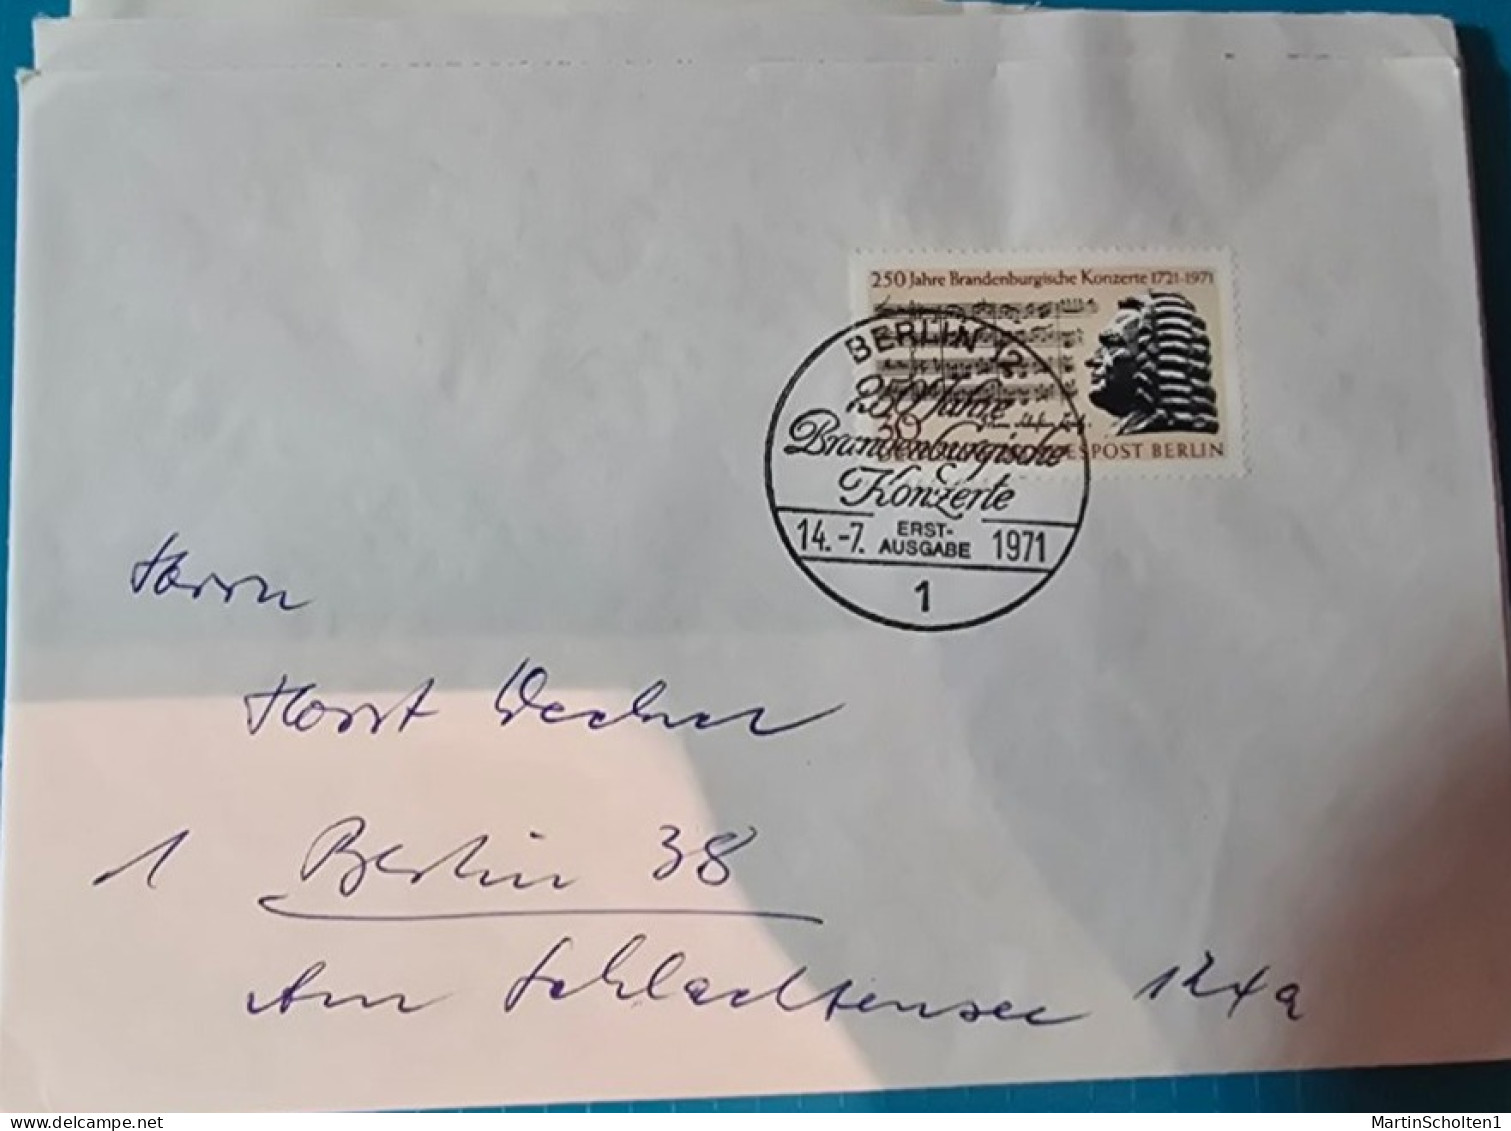 250 Jahre Brandenburgische Konzerte 1721-1971
BERLIN 12
250 Jahre
Brandenburgische
Konzerte
30
POST BERLIN
14.-7. ERST-
AUSGABE 1971
1
Herrn
Horst Wecher
1 Berlin 38
Am Schlachtensee 124a
MartinScholten1